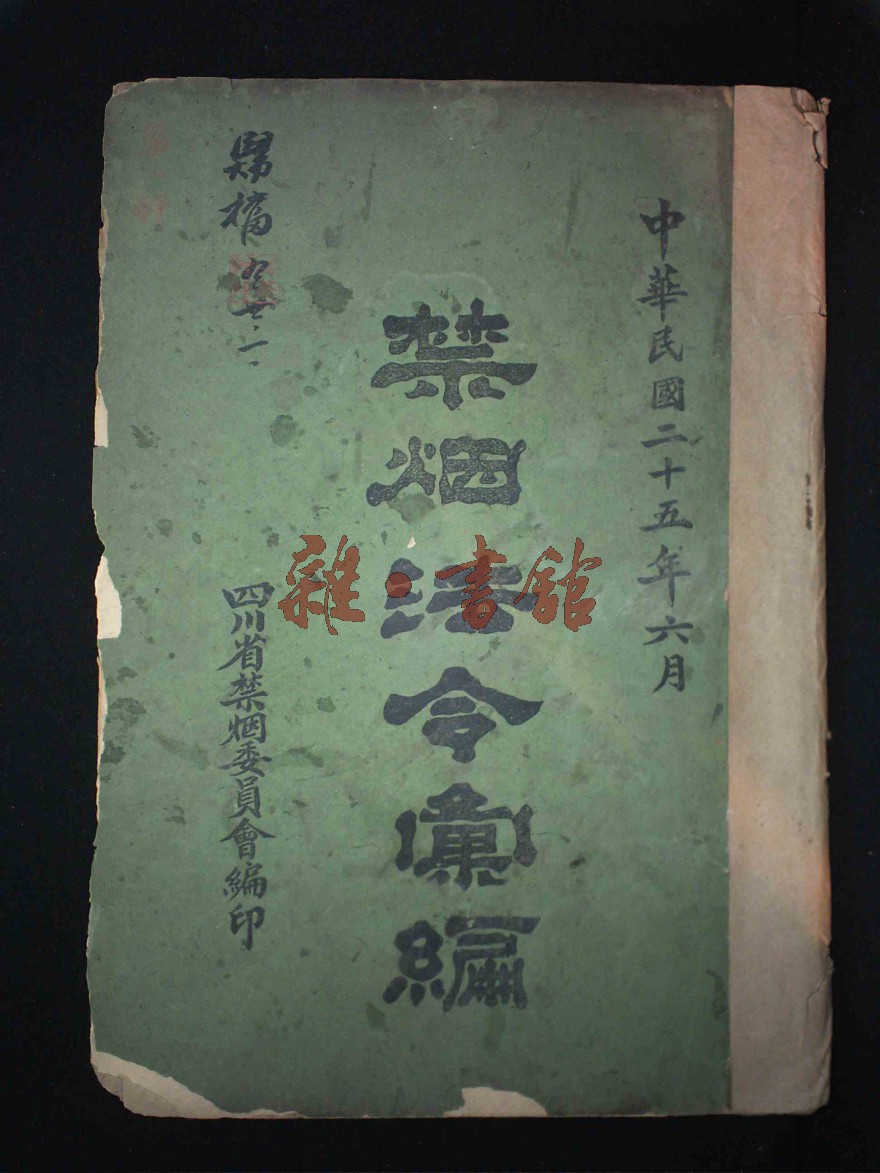 中華民國二十五年六月
禁烟法令彙編
四川省禁烟委員會編印
雜·書館
歸檔